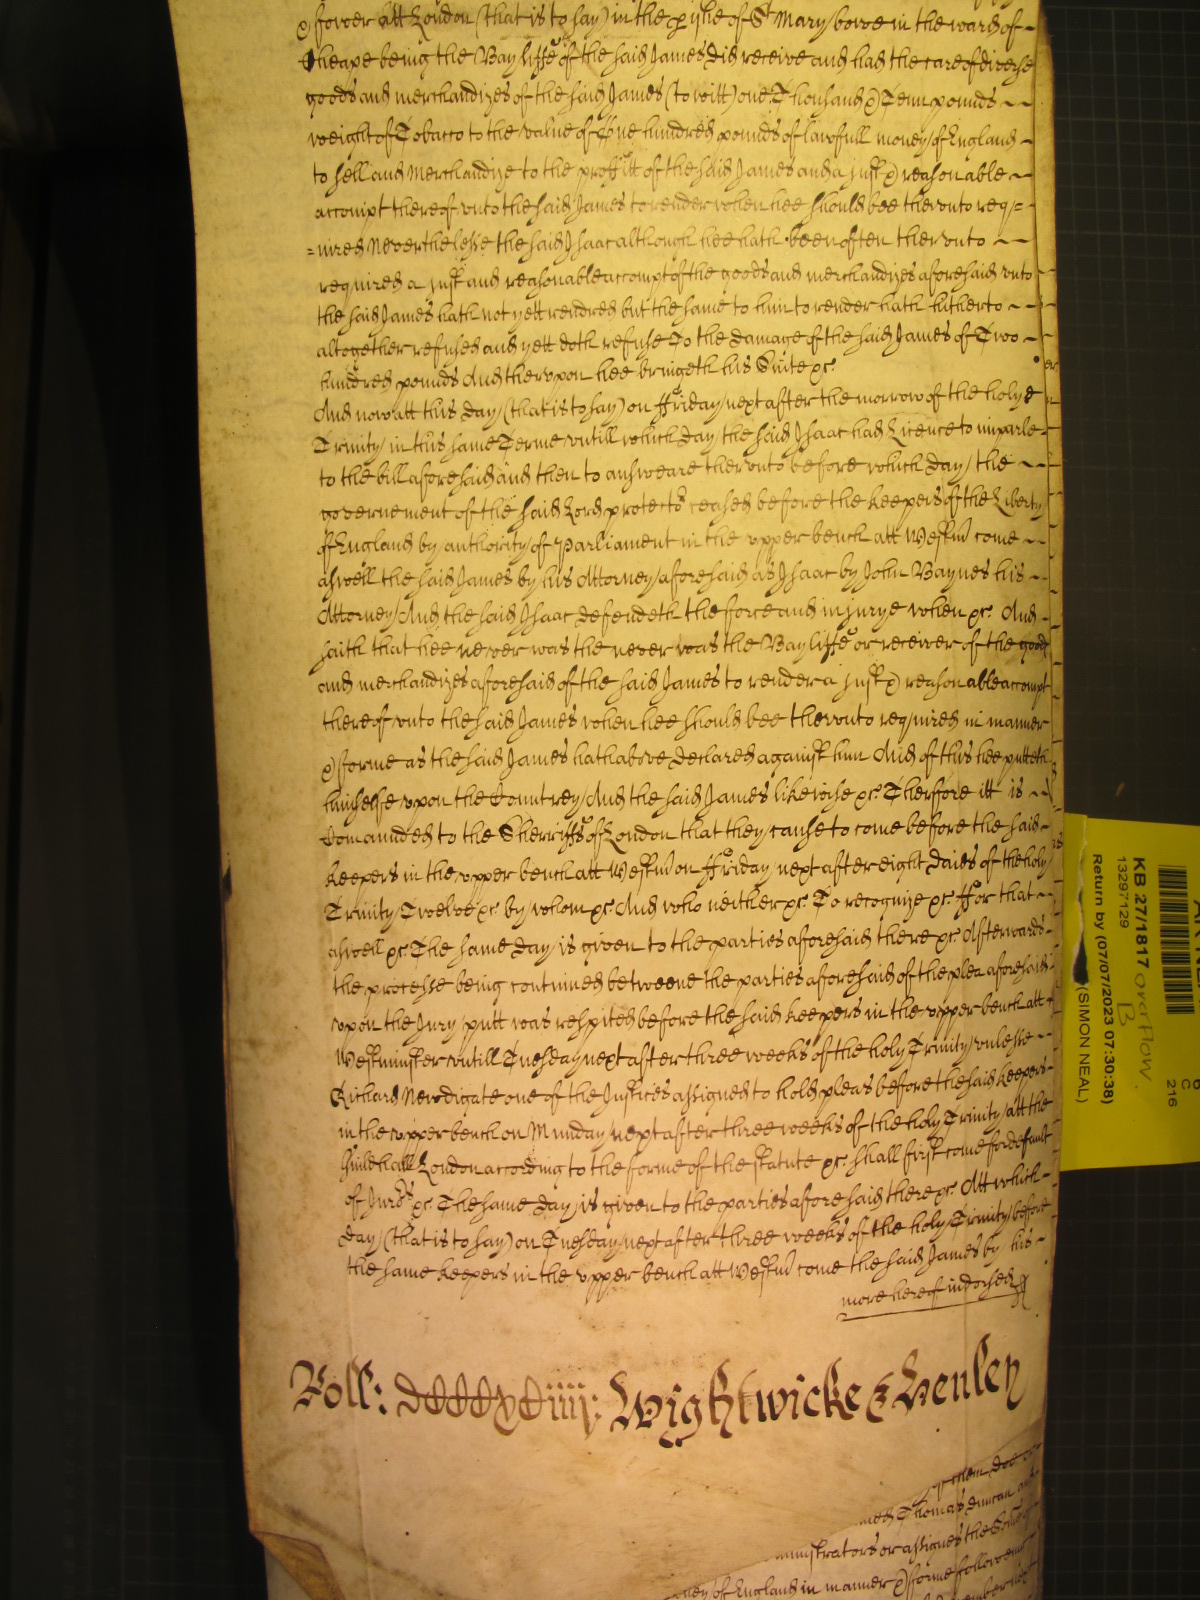 & forver att London (that is to say) in the p'ishe of St Mary bowe in the ward of
Cheape being the Bayliffe of the said James did receive and had the care of diverse
goods and merchandizes of the said James (to witt) one Thousand & Tenn pounds
weight of Tobacco to the value of One hundred pounds of lawfull money of England
to sell and Merchandize to the profitt of the said James and a just & reasonable
accompt thereof unto the said James to render when hee should bee therunto req=
=uired Neverthelesse the said Isaac although hee hath been often therunto
required a just and reasonable accompt of the goods and merchandizes aforesaid unto
the said James hath not yett rendred but the same to him to render hath hitherto
altogether refused and yett doth refuse To the damage of the said James of Two
hundred pounds And therupon hee bringeth his Suite &c
And now att this day (that is to say) on Ffriday next after the morrow of the holy
Trinity in this same Terme untill which day the said Isaac had Licence to imparle
to the bill aforesaid and then to answeare therunto before which day the
governement of the said Lord protector ceased before the keepers of the Liberty
of England by authority of Parliament in the upper bench att Westm' come
aswell the said James by his Attorney aforesaid as Isaac by John Baynes his
Attorney And the said Isaac defendeth the force and injurye when &c And
saith that hee never was the never was the Bayliffe or receiver of the goods
and merchandizes aforesaid of the said James to render a just & reasonable accompt
thereof unto the said James when hee should bee therunto required in manner
& forme as the said James hath above declared against him And of this hee putteth
himselfe upon the Countrey And the said James likewise &c Therffore itt is
Comannded to the Sherriffs of London that they cause to come before the said
keepers in the upper bench att Westm' on Ffriday next after eight daies of the holy
Trinity Twelve &c by whom &c And who neither &c To recognize &c Ffor that
aswell &c The same day is given to the parties aforesaid there &c Afterwards
the processe being continued betweene the parties aforesaid of the plea aforesaid
upon the Jury putt was respited before the said keepers in the upper bench att
Westminster untill Tuesday next after three weeks of the holy Trinity unlesse
Richard Newdigate one of the Justices assigned to hold pleas before the said keepers
in the upper bench on Munday next after three weeks of the holy Trinity att the
Guildhall London according to the forme of the statute &c shall first come for default
of Jurors &c The same day is given to the parties aforesaid there &c Att which
day (that is to say) on Tuesday next after three weeks of the holy Trinity before
the same keepers in the upper bench att Westm' come the said James by his
more hereof indorsed
Roll: Wightwicke & Henley
them doe
Thomas Duncan
ministrators or assignes the Some
ney of England in manner & forme followeing
KB 27/1817 overflow
13297129 B
Return by (07/07/2023 07:30:38)
(SIMON NEAL)
C
216